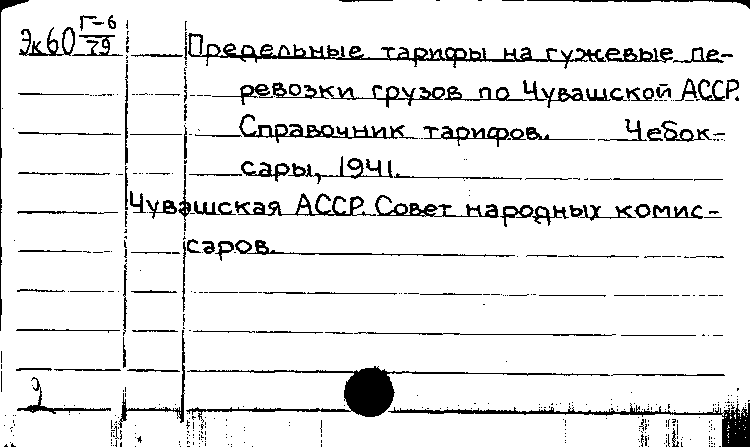 Эк60 Г-6/79
Предельные тарифы на гужевые пе-
ревозки грузов по Чувашской АССР.
Справочник тарифов. Чебок-
сары, 1941.
Чувашская АССР. Совет народных комис-
саров.
2